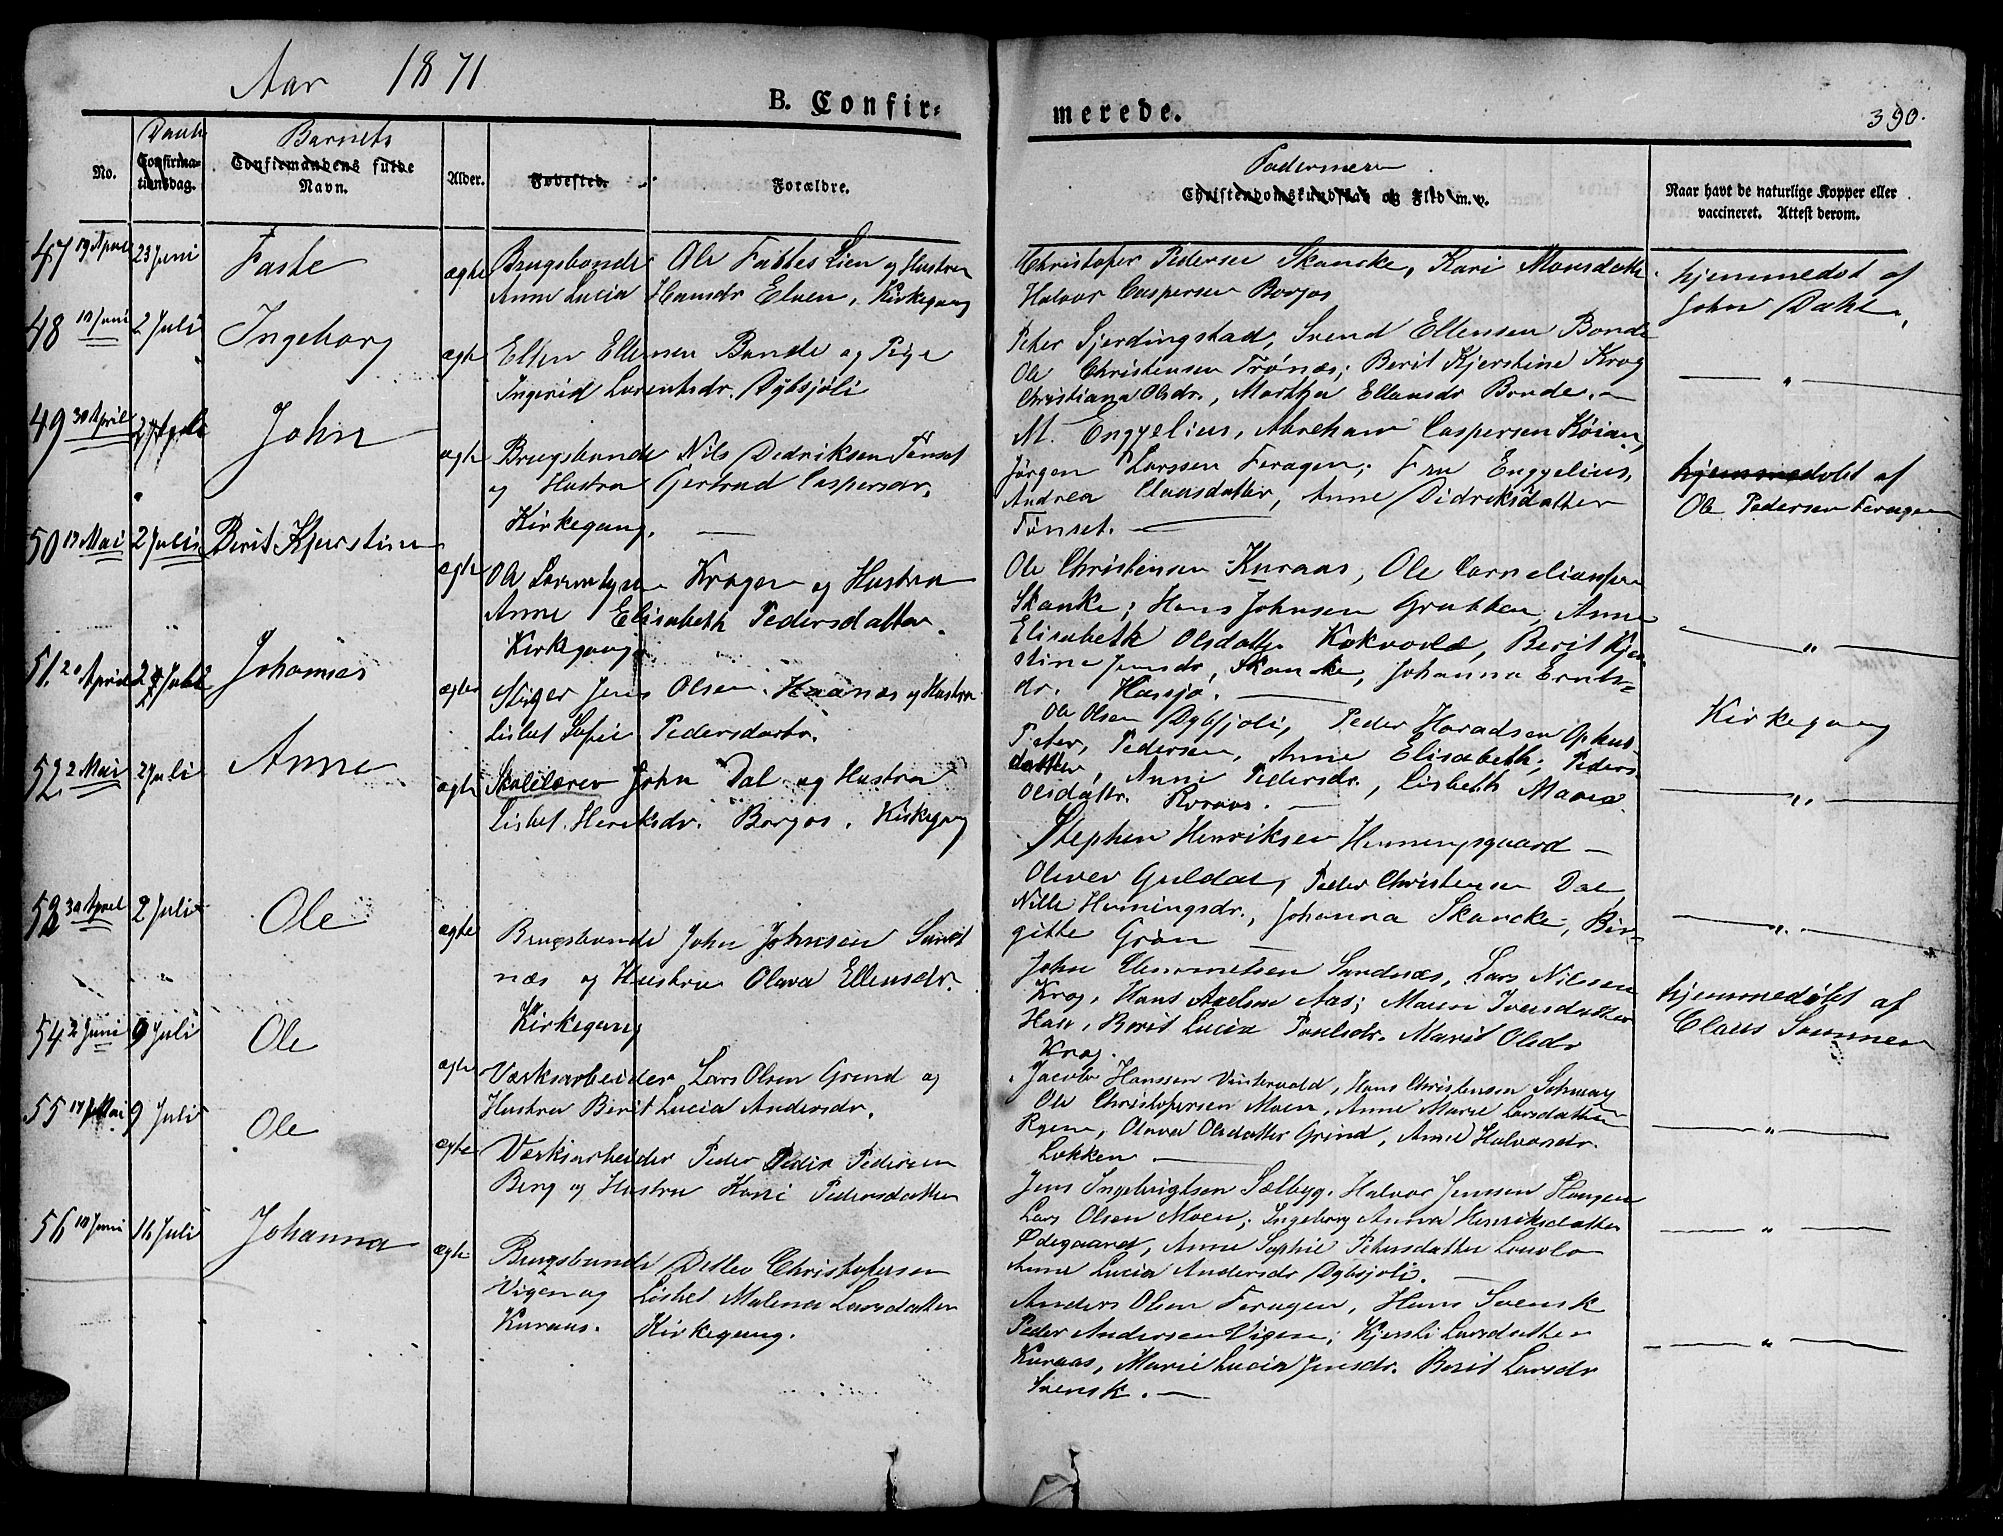 Aar 1871
B. Confir=
merede.
390.
No.
Daab
Confirma=
tionsdag.
Barnets
Confirmandens fulde
Navn.
Alder.
Fødested.
Forældre.
Faderne
Christendomskundskab og Flid m.v.
Naar havt de naturlige Kopper eller
vaccineret. Attest derom.
47 19 April 23 Juni Faste ægte Brugsbonde Ole Fastes Lien og Hustru
Anne Lucia Hansdr Elven, Kirkegang
Christofer Pedersen Skancke, Kari Monsdatter
Halvor Caspersen Borgos
hjemmedøbt af
John Dahl
48 10 Juni 2 Juli Ingeborg ægte Ellen Ellensen Bonde og Pige
Ingerid Lorentsdr. Dybsjøli
Peter Gjerdingstad, Svend Ellensen Bonde
Ole Christensen Trønæs; Berit Kjerstine Krog
Christiana Olsdr., Marthe Ellensdr Bonde. —
— " —
49 30 April 2 Juli John ægte Brugsbonde Nils Didriksen Tønset
og Hustru Gertrud Caspersdr.
Kirkegang. —
M. Engyelius, Abraham Caspersen Køian,
Jørgen Larssen Feragen; Fru Engyelius,
Andrea Claasdatter, Anne Didriksdatter
Tønset. —
hjemmedøbt af
Ole Pedersen Feragen
50 19 Mai 2 Juli Berit Kjerstine ægte Ole Lorentsen Krogen og Hustru
Anne Elisabeth Pedersdatter.
Kirkegang
Ole Christensen Kuraas, Ole Corneliussen
Skanke; Hans Johnsen Grubben, Anne
Elisabeth Olsdatter Kokvold, Berit Kjer
stine Jensdr, Skancke, Johanna Ernts-
dr. Hassjø. —
— " —
51. 20 April 2 Juli Johannes ægte Stiger Jens Olsen Haanæs og Hustru
Lisbet Sofie Pedersdatter.
Ole Olsen Dybsjøli, Peder Haradsen Ophus
Peter Pedersen, Anne Elisabeth Peders
datter, Anne Pedersdr., Lisbeth Maria
Olsdattr. Kuraas. —
Kirkegang
52. 2 Mai 2 Juli Anne ægte Skolelærer John Dal og Hustru
Lisbet Henriksdr. Borgos. Kirkegang
Stephen Henriksen Henningsgaard —
Oliver Guldal, Peder Christensen Dal
Nille Hemingsdr., Johanna Skancke, Bir-
gitte Grøn —
— " —
53 30 April 2 Juli Ole ægte Brugsbonde John Johnsen Sand
næs og Hustru Olava Ellensdr.
Kirkegang
John Clemmetsen Sandnæs, Lars Nilsen
Krog, Hans Axelsen Aas; Maren Iversdatter
Haie, Berit Lucia Povelsdr. Marit Olsdr
Krog.
— " —
hjemmedøbt af
Claus Sommer
54 2 Juni 9 Juli Ole ægte Værksarbeider Lars Olsen Grind og
Hustru Berit Lucia Andersdr.
Jacob Hanssen Vintervold, Hans Christensen Solhaug
Ole Christofersen Moen, Anne Marie Larsdatter
Ryen, Olava Olsdatter Grind, Anne Halvorsdr.
Løkken —
— " —
55 14 Mai 9 Juli Ole ægte Værksarbeider Peder Peder Pedersen
Berg og Hustru Kari Pedersdatter
Jens Ingebrigtsen Sælbyg. Halvor Jenssen Haugen
Lars Olsen Moen; Ingeborg Anna Henriksdatter
Ødegaard, Anne Sophie Petersdatter
Anne Lucia Andersdr Dybsjøli. —
— " —
56 10 Juni 16 Juli Johanna ægte Brugsbonde Detlev Christofersen
Vigen og Lisbet Malena Larsdatter
Kuraas. Kirkegang.
Anders Olsen Feragen, Hans Svensk
Peder Andersen Vigen; Kjersti Larsdatter
Kuraas, Marie Lucia Jensdr. Berit Larsdr
Svensk. —
— " —